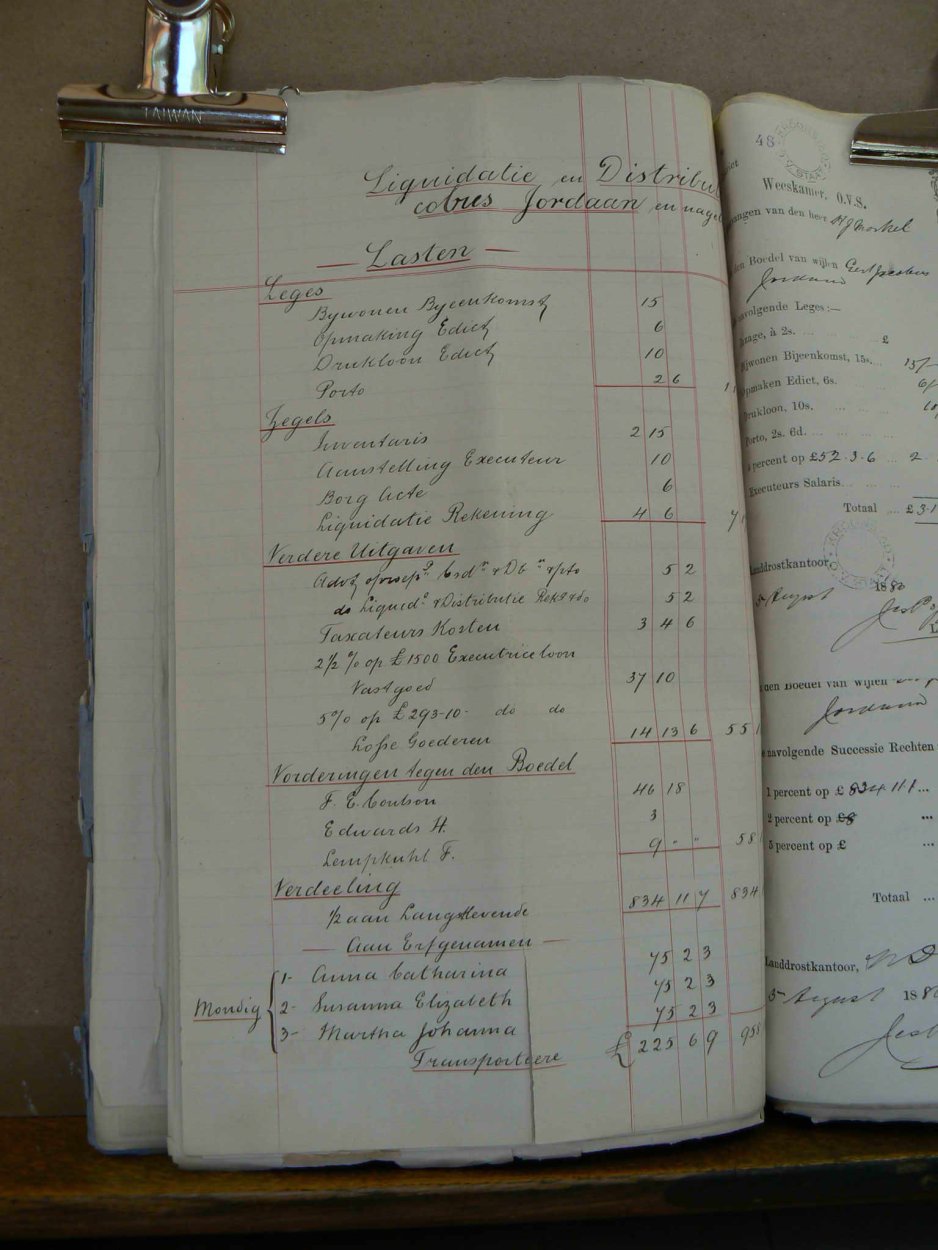 TAIWAN
Liquidatie en Distribu
cobus Jordaan en nage
— Lasten —
Leges
Bywonen Byeenkomst 15
Opmaking Edict 6
Drukloon Edict 10
Porto 2 6 1
Zegels
Inventaris 2 15
Aanstelling Executeur 10
Borg Acte 6
Liquidatie Rekening 4 6 7
Verdere Uitgaven
5 2
do Liquidº & Distributie Rek 5 2
Taxateurs Kosten 3 4 6
2½ % op £1500 Executriceloon
Vastgoed 37 10
5% op £293-10- do do
Losse Goederen 14 13 6 55
Vorderingen tegen den Boedel
F. E. Coulson 46 18
Edwards H. 3
Lempkuhl F. 9 " " 58
Verdeeling
½ aan Langstlevende 834 11 7 834
— Aan Erfgenamen —
1- Anna Catharina 75 2 3
Mondig 2- Susanna Elizabeth 75 2 3
3- Martha Johanna 75 2 3
Transporteere £ 225 6 9 95
48
Weeskamer, O.V.S.
angen van den heer
den Boedel van wijlen Gert Jacobus
Jordaan
navolgende Leges:—
age, à 2s. ... £
ijwonen Bijeenkomst, 15s. 15/-
pmaken Edict, 6s. 6/
Drukloon, 10s. 10
Porto, 2s. 6d.
percent op £52.3.6 ... 2
Executeurs Salaris
Totaal ... £3.1
Landdrostkantoor,
5 August 1880
den Boedel van wijlen
Jordaan
navolgende Successie Rechten
1 percent op £ 834 11 1 ...
2 percent op £ ...
5 percent op £ ...
Totaal ...
Landdrostkantoor,
5 August 188